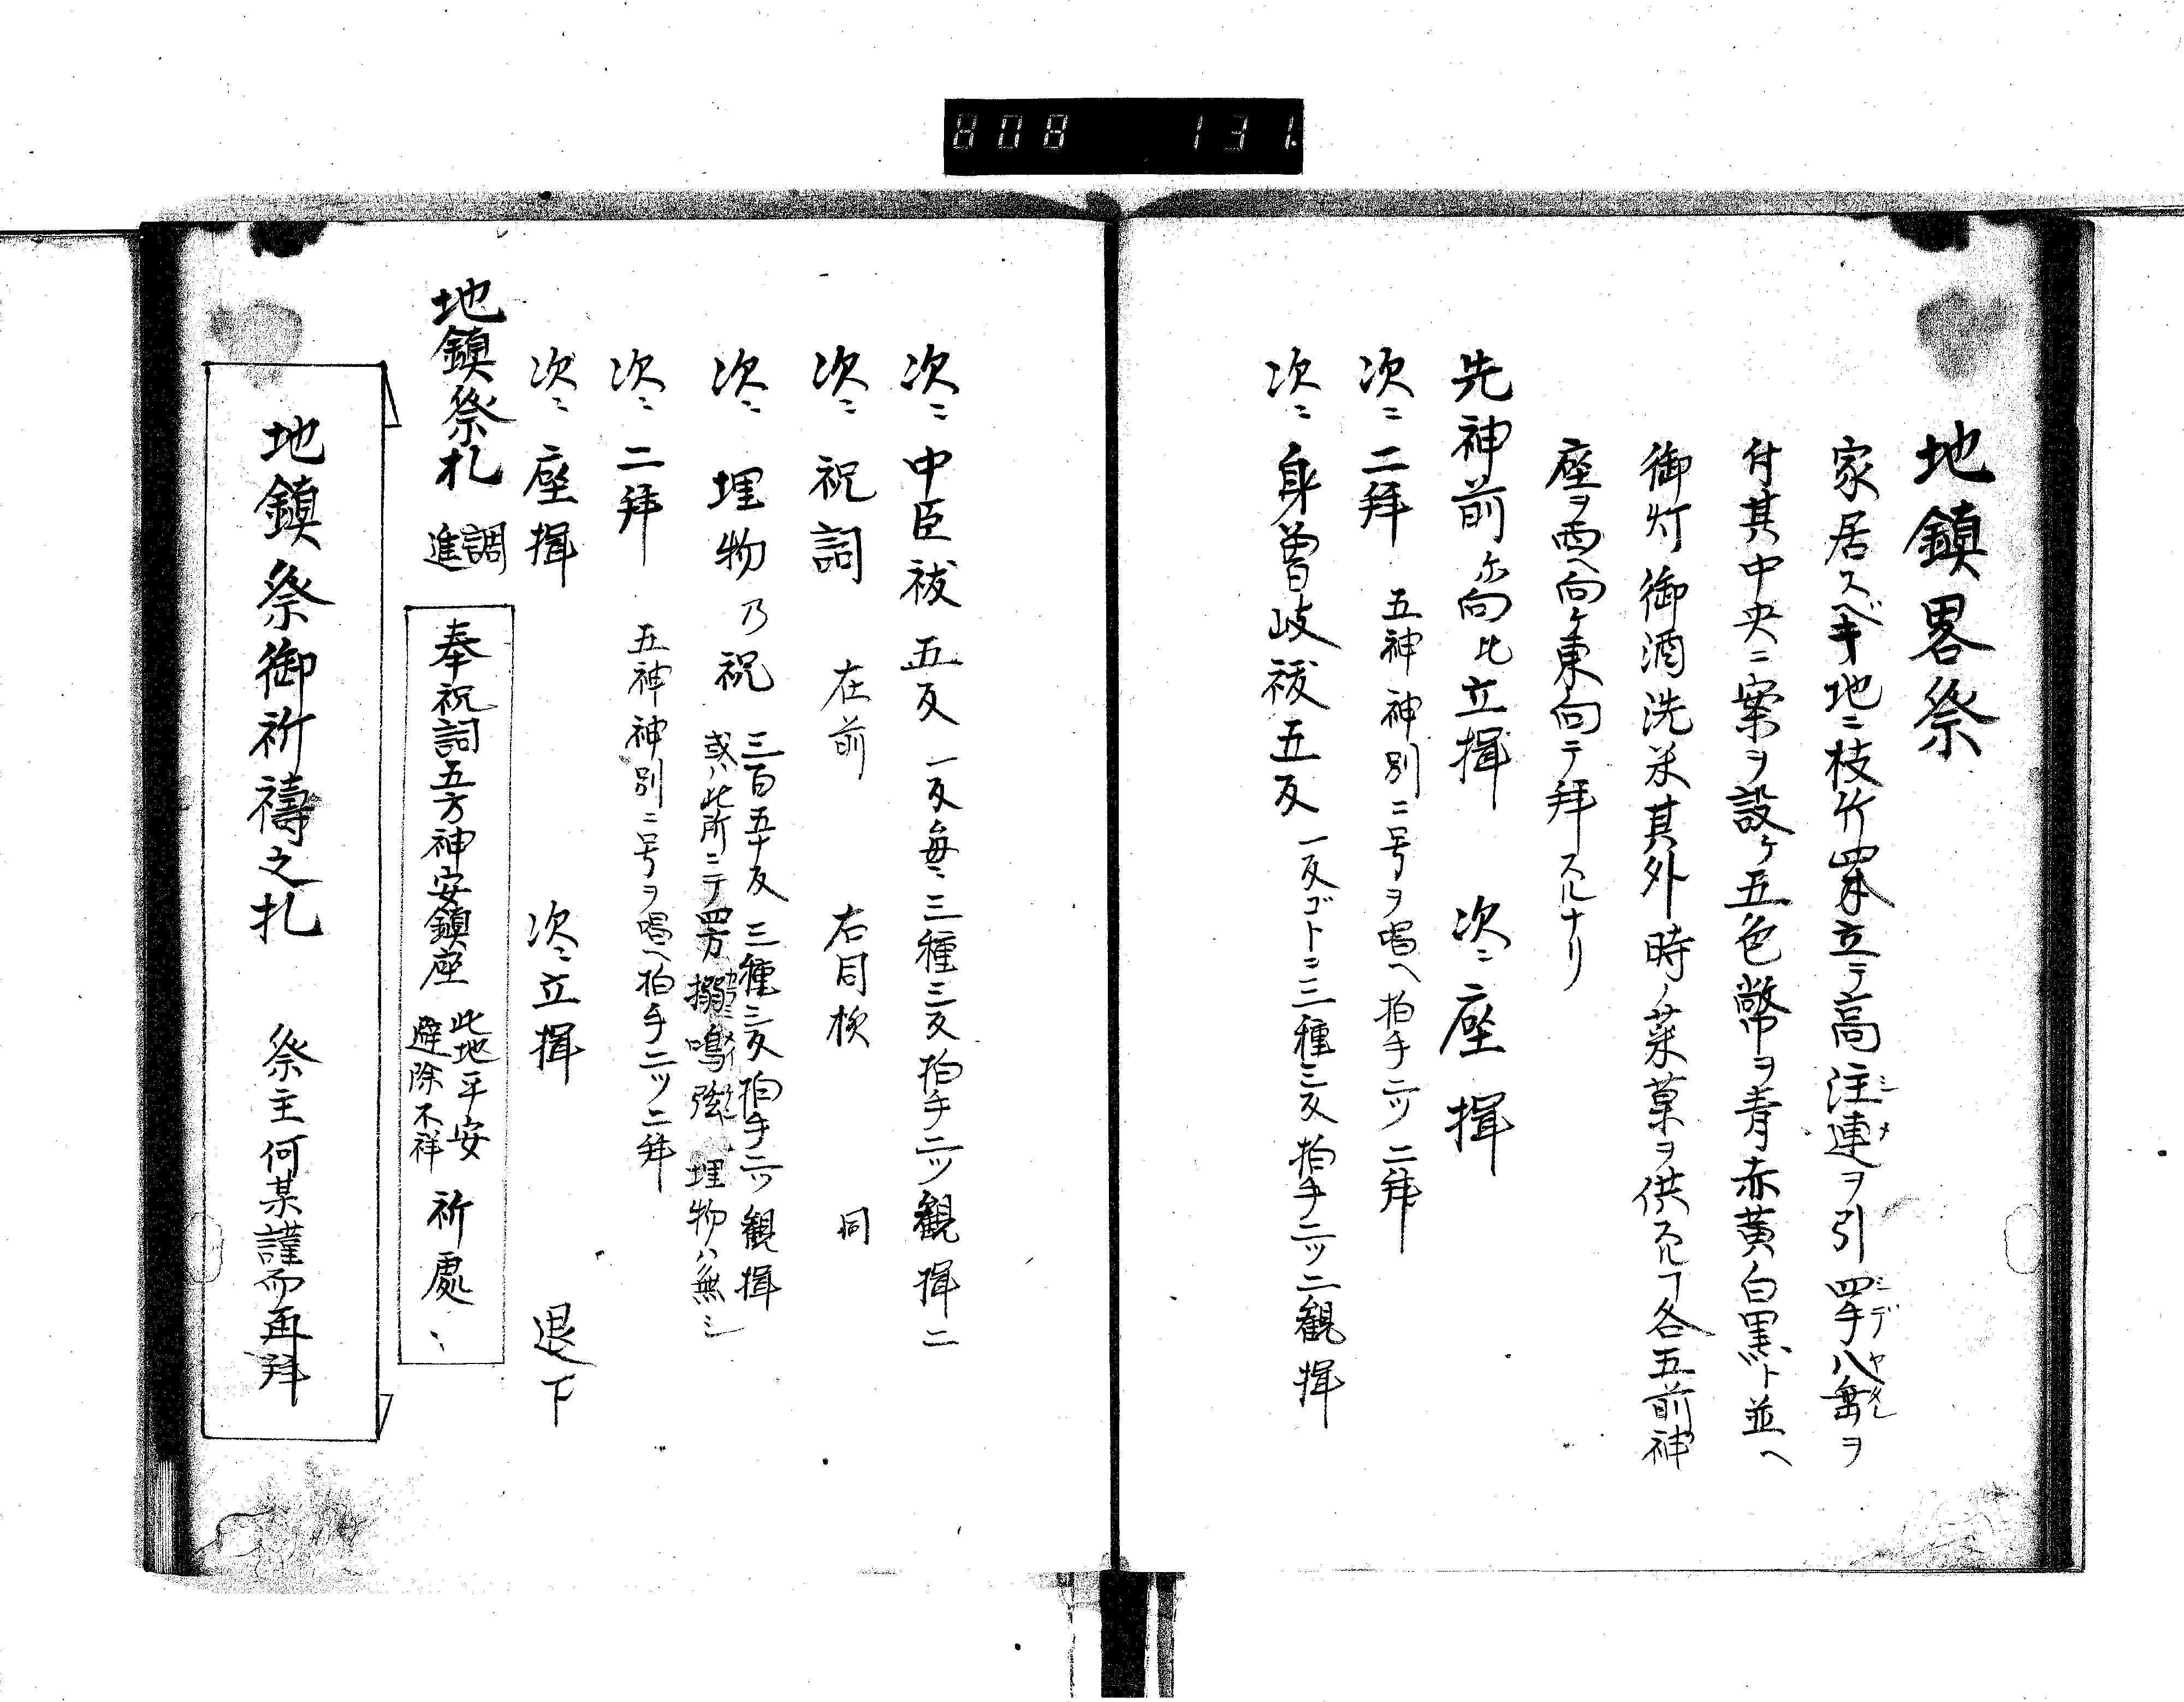 808 131.
地鎮畧祭
家居スベキ地ニ枝竹四本立テ高注連ヲ引四手八垂ヲ
シメ シデ ヤタレ
付其中央ニ案ヲ設ケ五色幣ヲ青赤黄白黒ト並ヘ
御灯御酒洗米其外時ノ菜菓ヲ供スルヿ各五前神
座ヲ西ヘ向ケ東向テ拜スルナリ
先神前尓向比立揖 次ニ座揖
次ニ二拜 五神神別ニ号ヲ唱ヘ拍手二ツ二拜
次ニ身曽岐祓五反 一反ゴトニ三種三反拍手二ツ二観揖
次ニ中臣祓五反 一反毎ニ三種三反拍手二ツ観揖二
次ニ祝詞 在前 右同検 同
次ニ埋物乃祝 三百五十反三種三反拍手二ツ観揖
或ハ此所ニテ四方 鳴弦 埋物ハ無シ
次ニ二拜 五神神別ニ号ヲ唱ヘ拍手二ツ二拜
次ニ座揖 次ニ立揖 退下
地鎮祭札 調進
奉祝詞五方神安鎮座 此地平安 避除不祥 祈處
地鎮祭御祈禱之札 祭主何某謹而再拜